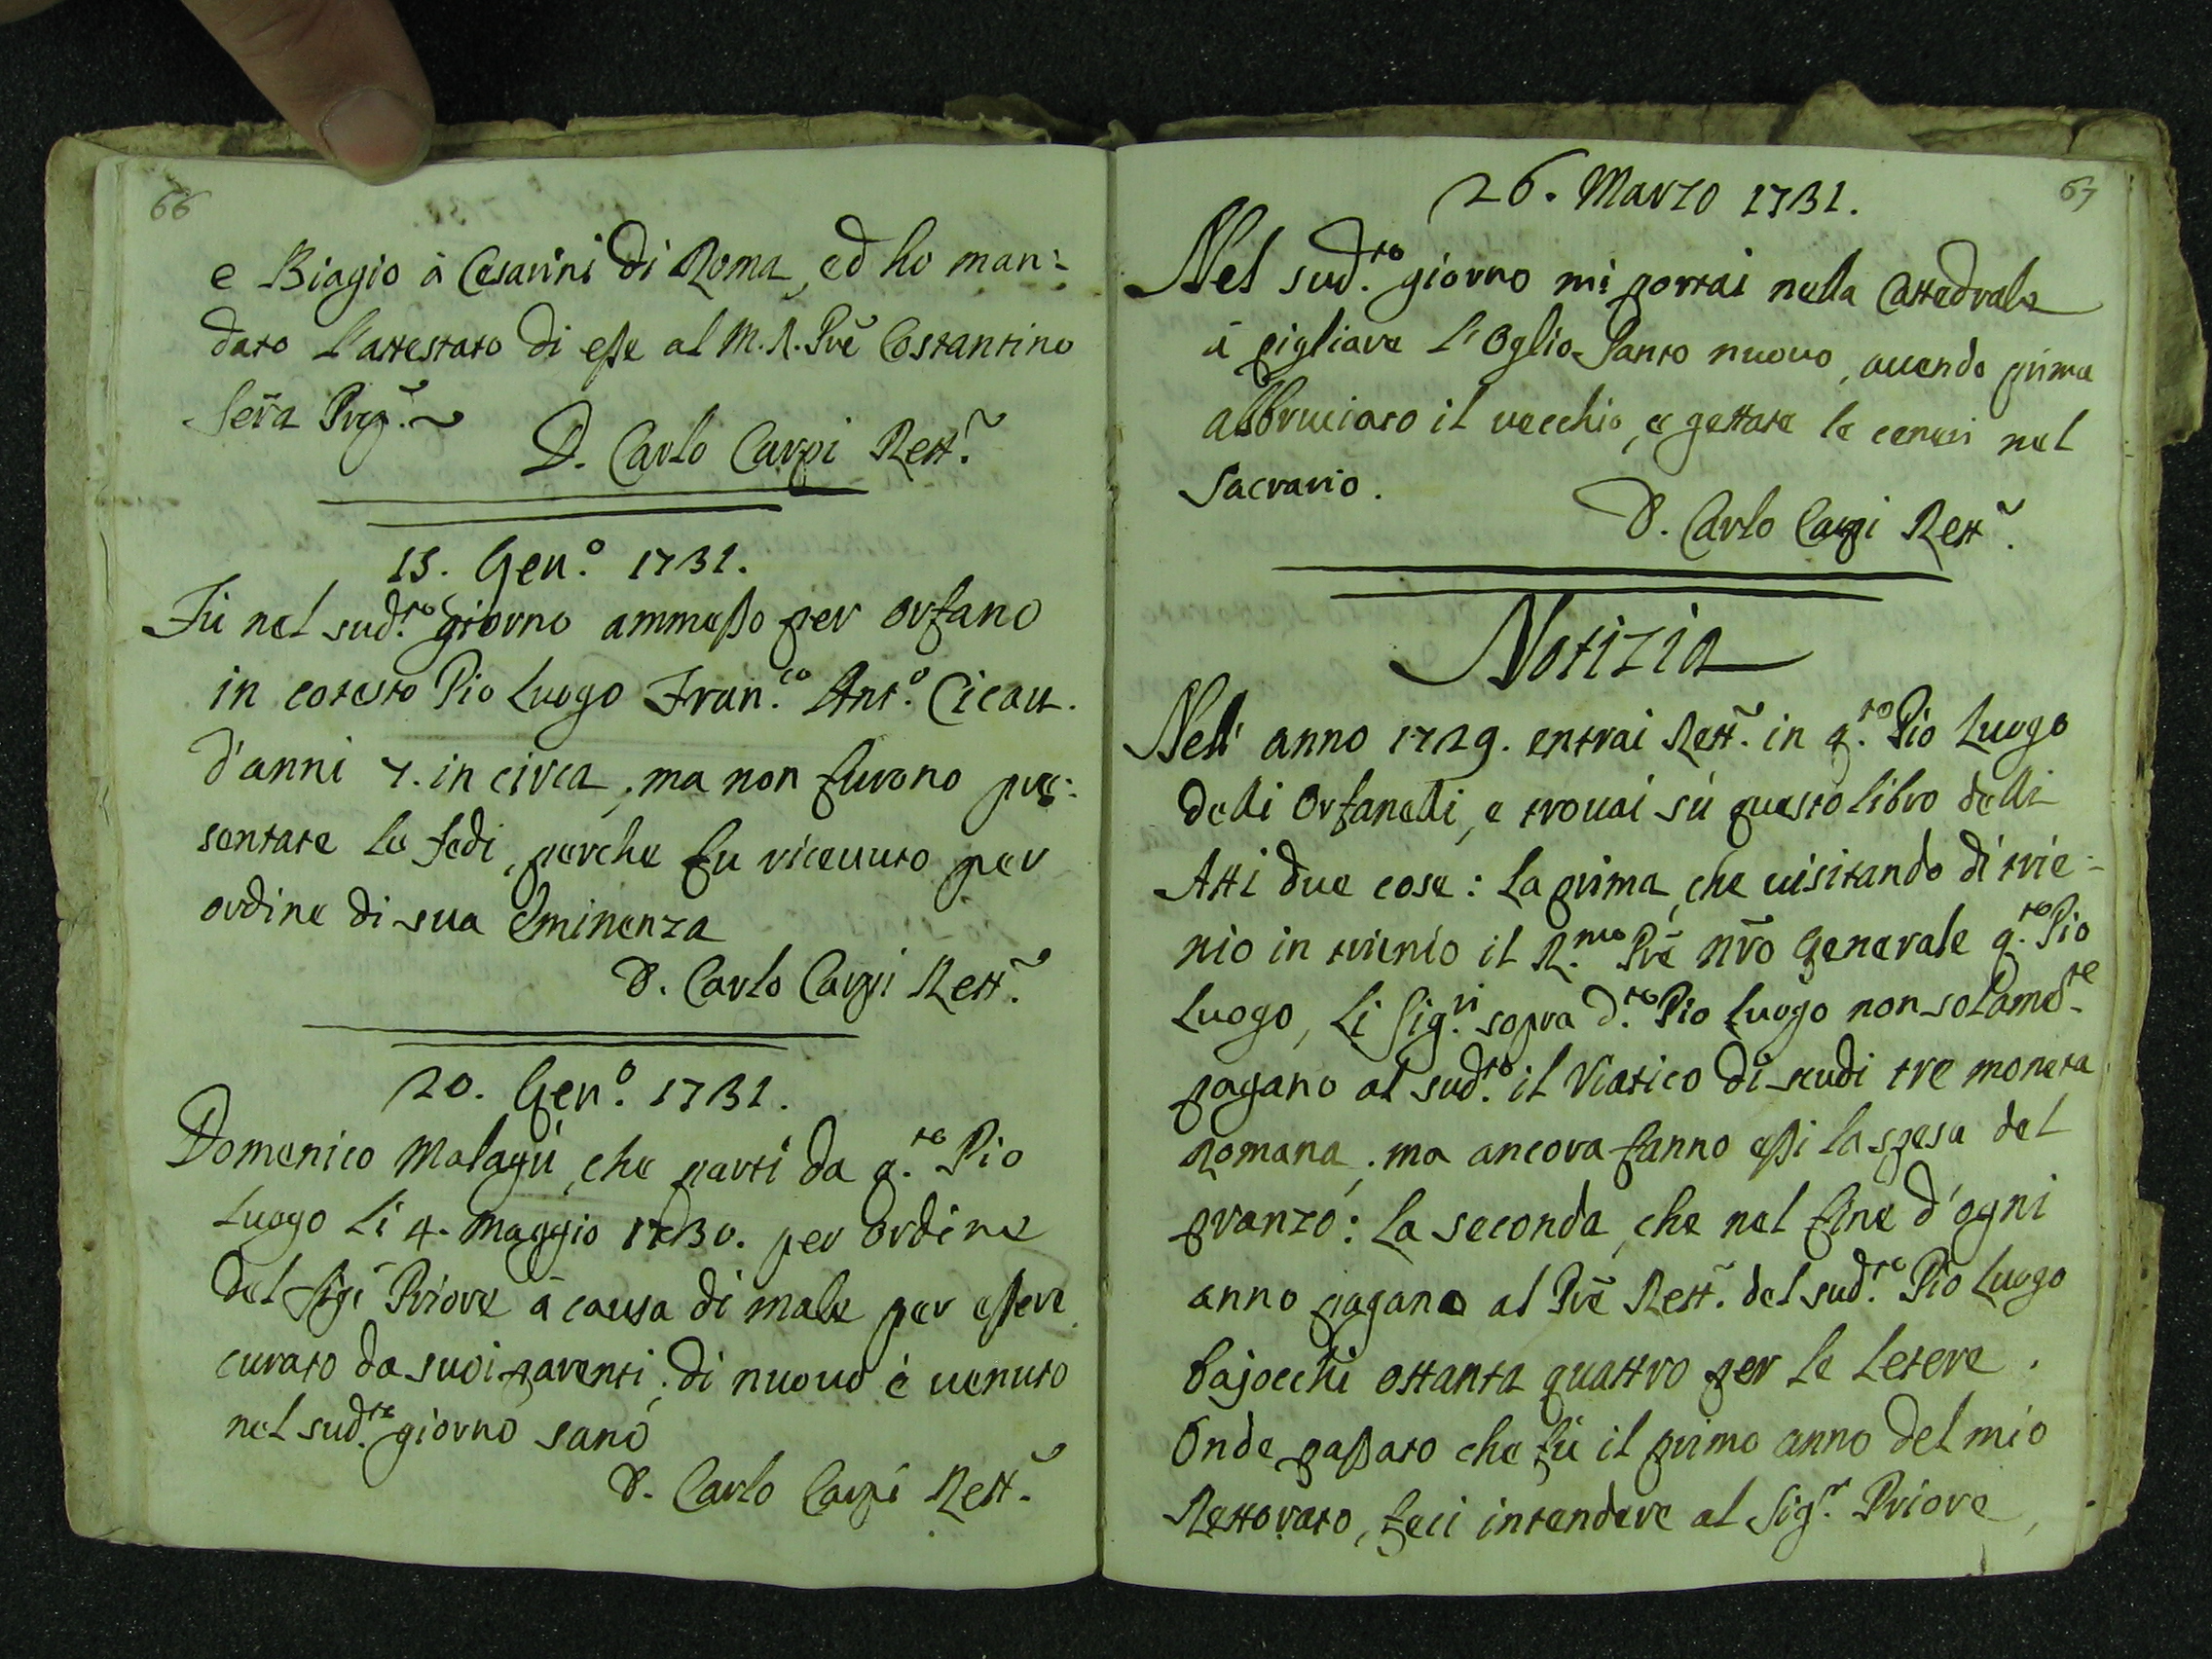 66
e Biagio à Cesarini di Roma, ed ho man:
dato l'attestato di esse al M. R. Prē Costantino
Serra Prep.~
D. Carlo Carpi Rett.~
13. Gen.º 1731.
Fù nel sud.to giorno ammesso per orfano
in cotesto Pio Luogo Fran.co Ant.º Cicau.
d'anni 7. in circa, ma non furono pre:
sentate le fedi, perche fu riceuuto per
ordine di sua Eminenza
D. Carlo Carpi Rett.~
20. Gen.º 1731.
Domenico Malagù, che partì da q.to Pio
Luogo li 4. Maggio 1730. per ordine
del Sig.r Priore à causa di male per essere
curato da suoi parenti, di nuouo è uenuto
nel sud.to giorno sano
D. Carlo Carpi Rett.~
67
26. Marzo 1731.
Nel sud.to giorno mi portai nella Cattedrale
à pigliare l'Oglio Santo nuouo, auendo prima
abbruciato il uecchio, e gettate le ceneri nel
sacrario.
D. Carlo Carpi Rett.~
Notizia
Nell' anno 1729. entrai Rett.~ in q.to Pio Luogo
delli Orfanelli, e trouai sù questo libro delli
Atti due cose: La prima, che uisitando di trie-
nio in trienio il R.mo Prē nrō Generale q.to Pio
Luogo, li Sig.ri sopra d.to Pio Luogo non solame.te
pagano al sud.to il Viatico di scudi tre moneta
Romana, ma ancora fanno essi la spesa del
pranzo: La seconda, che nel fine d'ogni
anno pagano al Prē Rett.~ del sud.to Pio Luogo
bajocchi ottanta quattro per le letere.
Onde passato che fù il primo anno del mio
Rettorato, feci intendere al Sig.r Priore,